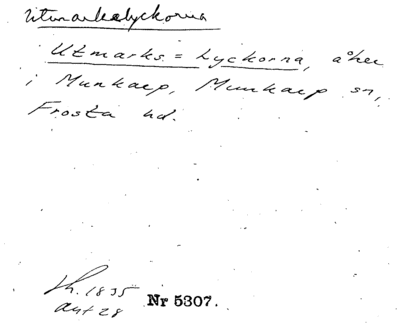 Utmarkslyckorna
Utmarks=Lyckorna, åker
i Munkarp, Munkarp sn,
Frosta hd.
Sk. 1835
akt 28
Nr 5307.